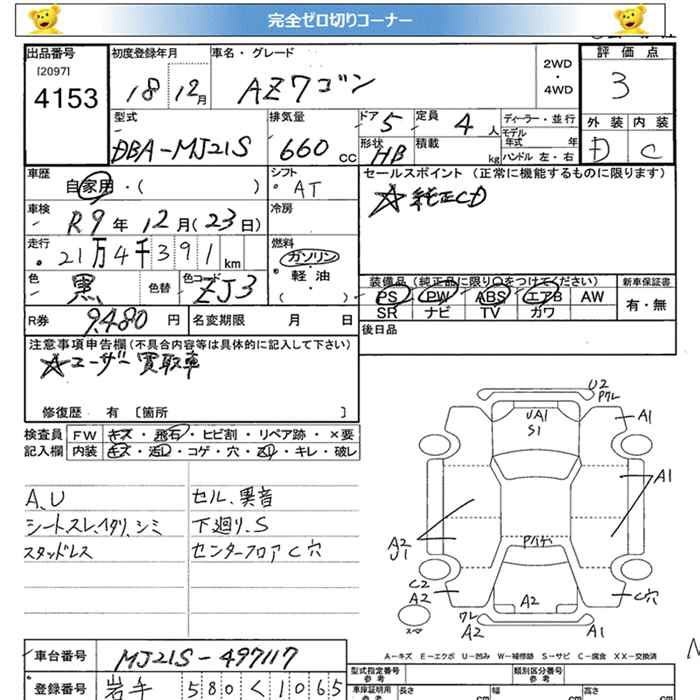 完全ゼロ切りコーナー
出品番号
[2097]
4153
初度登録年月
18 12月
車名・グレード
AZワゴン
2WD
・
4WD
評価点
3
外装 内装
D C
型式
DBA-MJ21S
排気量
660 CC
ドア 5
形状 HB
定員 4 人
積載 kg
ディーラー・並行
モデル年式 年
ハンドル 左・右
車歴
自家用・( )
シフト
AT
セールスポイント (正常に機能するものに限ります)
☆純正CD
車検
R9年12月(23日)
冷房
走行
21万4千391km
燃料
ガソリン
・軽油
・( )
色
黒
色替
色コード
ZJ3
装備品 (純正品に限り○をつけてください)
PS PW ABS エアB AW
SR ナビ TV カワ
新車保証書
有・無
R券 9,480 円
名変期限 月 日
後日品
注意事項申告欄(不具合内容等は具体的に記入して下さい)
☆ユーザー買取車
修復歴 有 〔箇所 〕
検査員
記入欄
FW キズ・飛石・ヒビ割・リペア跡・×要
内装 キズ・汚レ・コゲ・穴・スリ・キレ・破レ
A、U
シートスレ、ヘタリ、シミ
スタッドレス
セル、異音
下廻り、S
センターフロアC穴
U2
Pワレ
UA1
S1
A1
A1
A2
U1
Pハゲ
C2
A2
A2
C穴
スペア
ワレ
A2
A1
A-キズ E-エクボ U-凹み W-補修跡 S-サビ C-腐食 XX-交換済
車台番号
MJ21S-497117
登録番号
岩手 580 く 1065
型式指定番号
類別区分番号
車庫証明用
参考
長さ cm
幅 cm
高さ cm